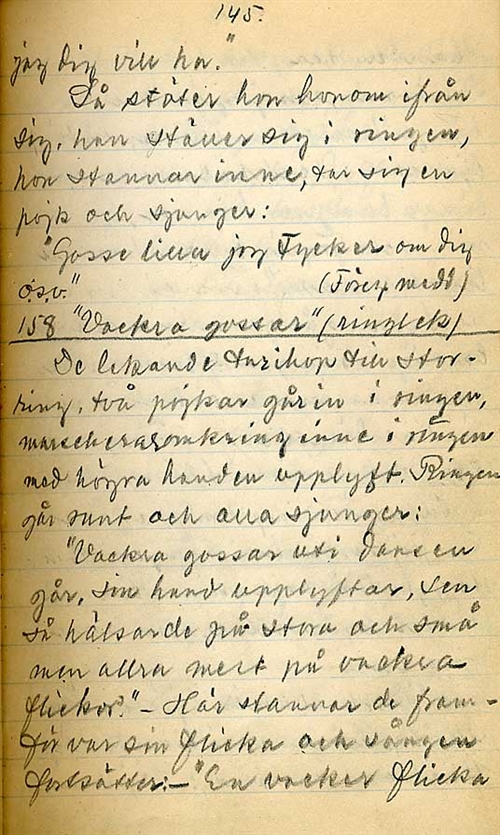 145.
jag dig vill ha."
Så stöter hon honom ifrån
sig, han ställer sig i ringen,
hon stannar inne, tar sig en
pojk och sjunger:
"Gosse lilla jag tycker om dig
o.s.v." (Föreg. medd)
158 "Vackra gossar" (ringlek)
De lekande tar ihop till stor-
ring, två pojkar går in i ringen,
marschera omkring inne i ringen
med högra handen upplyft. Ringen
går runt och alla sjunger:
"Vackra gossar uti dansen
går, sin hand upplyftar, sen
så hälsar de på stora och små
men allra mest på vackra
flickor." – Här stannar de fram-
för var sin flicka och sången
fortsätter: – "En vacker flicka